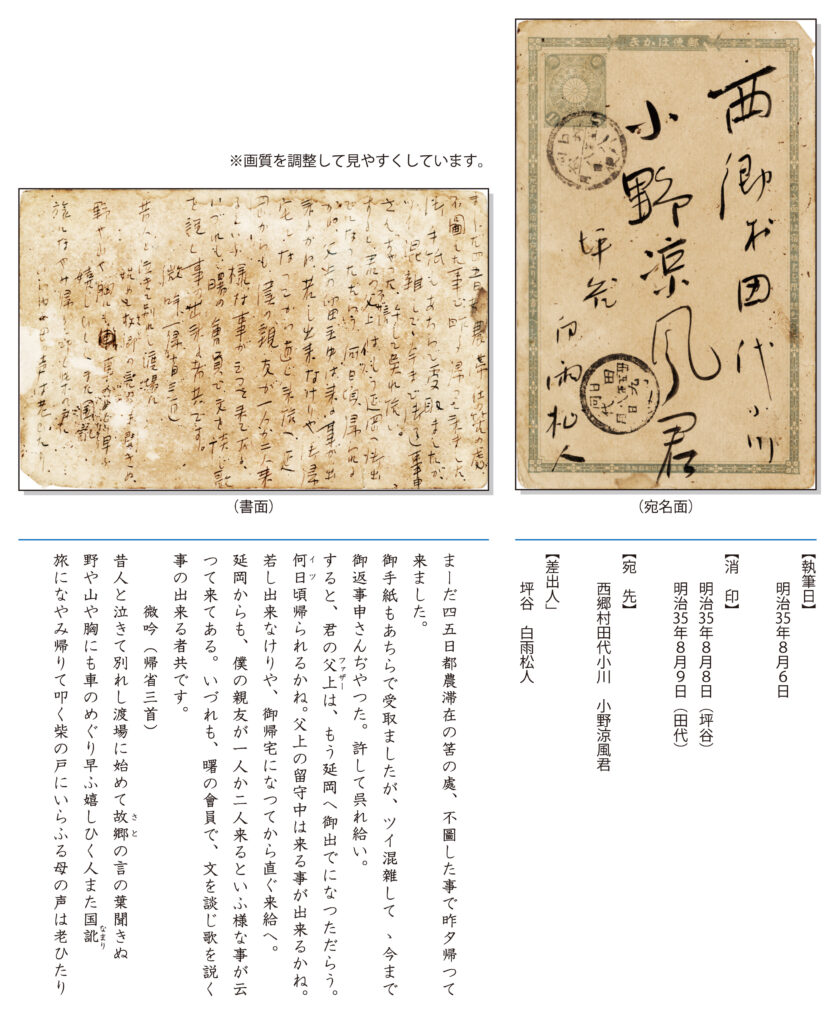 郵便はかき
西郷村田代小川
小野涼風君
坪谷
白雨松人
※画質を調整して見やすくしています。
（書面）
（宛名面）
【執筆日】
明治35年８月６日
【消　印】
明治35年８月８日（坪谷）
明治35年８月９日（田代）
【宛　先】
西郷村田代小川　小野涼風君
【差出人】
坪谷　白雨松人
まーだ四五日都農滞在の筈の處、不圖した事で昨夕帰つて
来ました。
御手紙もあちらで受取ましたが、ツイ混雜して、今まで
御返事申さんぢやつた。許して呉れ給い。
すると、君の父上は、もう延岡へ御出でになつただらう。
ファザー
何日頃帰られるかね。父上の留守中は来る事が出来るかね。
イツ
若し出来なけりや、御帰宅になつてから直ぐ来給へ。
延岡からも、僕の親友が一人か二人来るといふ様な事が云
つて来てある。いづれも、曙の會員で、文を談じ歌を説く
事の出来る者共です。
微吟（帰省三首）
昔人と泣きて別れし渡場に始めて故郷の言の葉聞きぬ
さと
野や山や胸にも車のめぐり早ふ嬉しひく人また国訛
なまり
旅になやみ帰りて叩く柴の戸にいらふる母の声は老ひたり